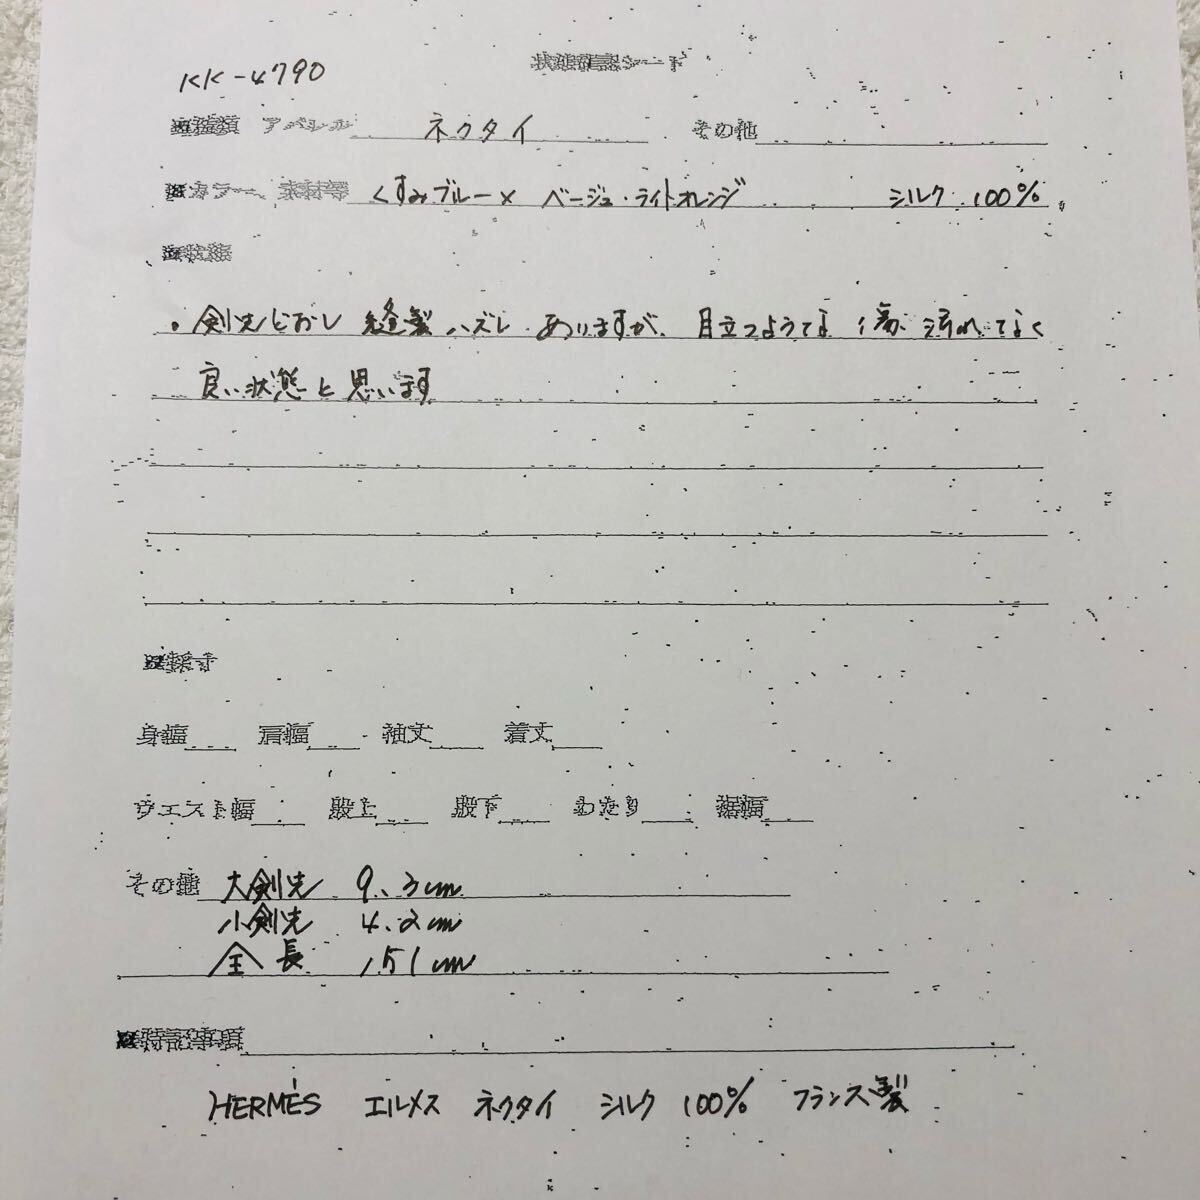 KK-4790
状態確認シート
※種類 アパレル ネクタイ その他
※カラー 素材等 くすみブルー× ベージュ・ライトオレンジ シルク 100%
※状態
・剣先とおし 縫製ハズレ ありますが、目立つような 傷 汚れ なく
良い状態と思います
※採寸
身幅 肩幅 袖丈 着丈
ウエスト幅 股上 股下 わたり 裾幅
その他 大剣先 9.3cm
小剣先 4.2cm
全長 151cm
※特記事項
HERMÉS エルメス ネクタイ シルク 100% フランス製